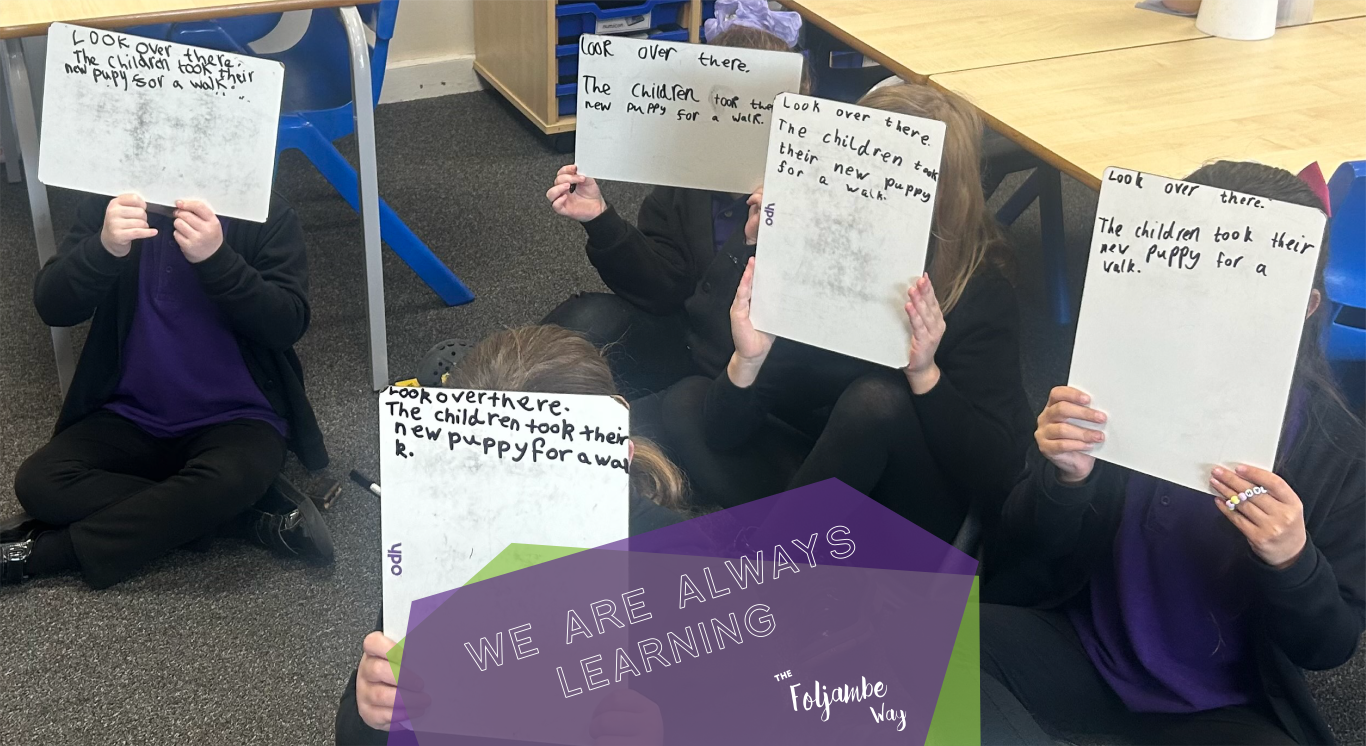 LOOK over there.
The children took their
new pupy for a walk.
LOOK over there.
The Children took the
new puppy for a walk.
Look over there.
The children took
their new puppy
for a walk.
ypo
Look over there.
The children took their
new puppy for a
walk.
Look over there.
The children took their
new puppy for a wal
k.
ypo
WE ARE ALWAYS
LEARNING
THE
Foljambe
Way